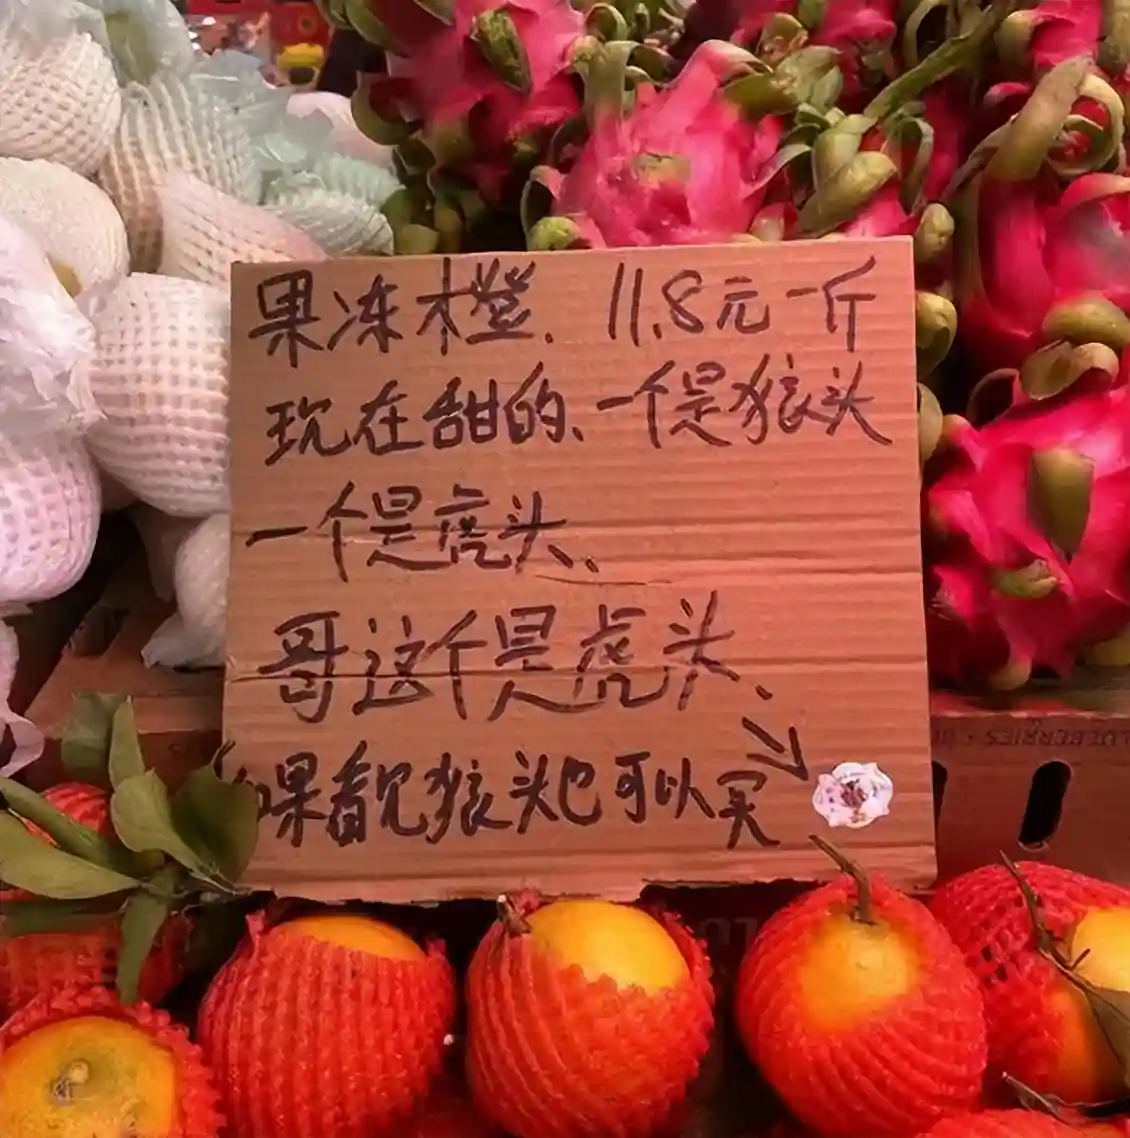 果冻橙. 11.8元一斤
现在甜的、一个是狼头
一个是虎头、
哥这个是虎头、
如果看见狼头也可以买